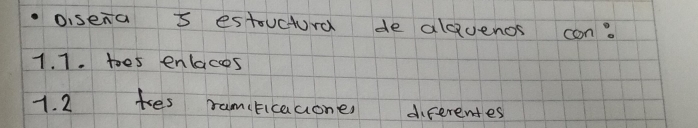 • Diseña 5 estructura de alquenos con:
1.1. tres enlaces
1.2 tres ramificaciones diferentes